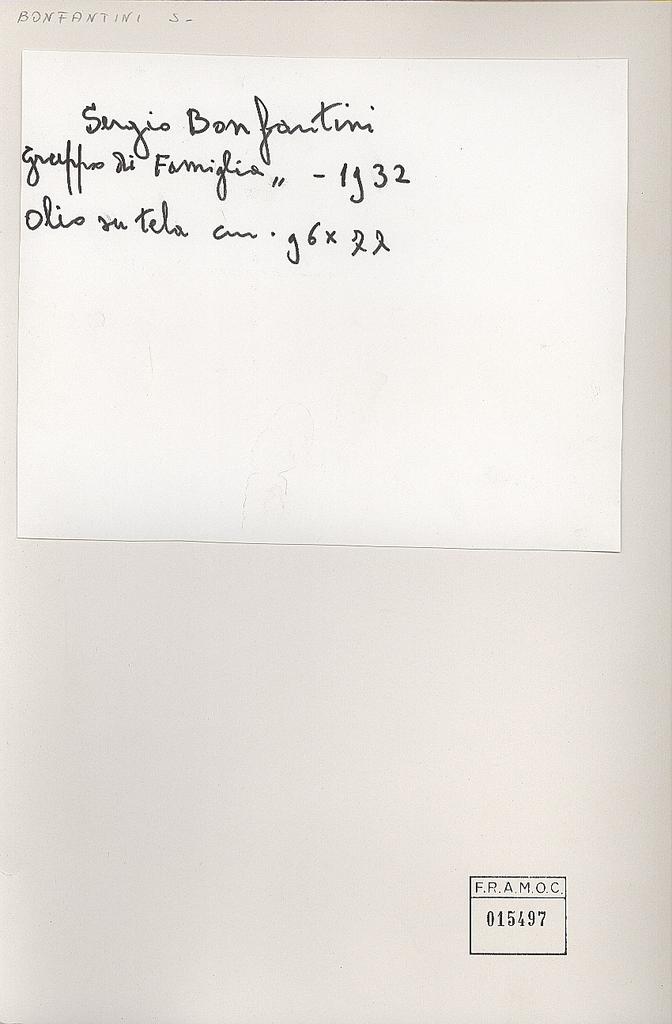 BONFANTINI S-
Sergio Bonfantini
Gruppo di Famiglia" - 1932
Olio su tela cm. 96x
F.R.A.M.O.C.
015497